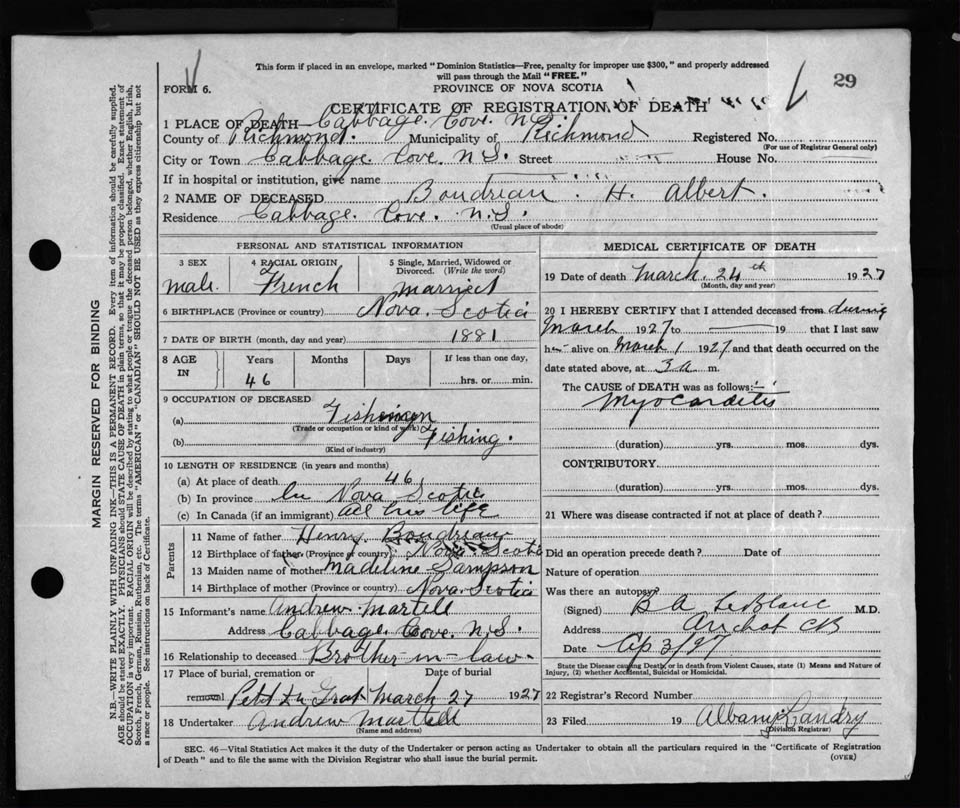 This form if placed in an envelope, marked "Dominion Statistics—Free, penalty for improper use $300," and properly addressed
will pass through the Mail "FREE."
FORM 6.
PROVINCE OF NOVA SCOTIA
29
CERTIFICATE OF REGISTRATION OF DEATH
1 PLACE OF DEATH— Cabbage Cove. N.S.
County of Richmond. Municipality of Richmond Registered No.
(For use of Registrar General only)
City or Town Cabbage Cove N.S. Street House No.
If in hospital or institution, give name
2 NAME OF DECEASED Boudreau. H. Albert.
Residence Cabbage Cove. N.S.
(Usual place of abode)
PERSONAL AND STATISTICAL INFORMATION
3 SEX 4 RACIAL ORIGIN 5 Single, Married, Widowed or
Divorced. (Write the word)
male. French married
6 BIRTHPLACE (Province or country) Nova Scotia
7 DATE OF BIRTH (month, day and year) 1881
8 AGE IN Years Months Days If less than one day,
46 hrs. or min.
9 OCCUPATION OF DECEASED
(a)
(Trade or occupation or kind of work)
(b) Fishing.
(Kind of industry)
10 LENGTH OF RESIDENCE (in years and months)
(a) At place of death 46
(b) In province In Nova Scotia
(c) In Canada (if an immigrant) all his life
Parents
11 Name of father Henry Boudreau
12 Birthplace of father (Province or country) Nova Scotia
13 Maiden name of mother Madeline Sampson
14 Birthplace of mother (Province or country) Nova Scotia
15 Informant's name Andrew Martell
Address Cabbage Cove. N.S.
16 Relationship to deceased Brother-in-law.
17 Place of burial, cremation or removal Date of burial
Petit de Grat March 27 1927
18 Undertaker Andrew Martell
(Name and address)
MEDICAL CERTIFICATE OF DEATH
19 Date of death March 24th 1927
(Month, day and year)
20 I HEREBY CERTIFY that I attended deceased from during
March 1927 to — 19 that I last saw
h alive on March 1 1927 and that death occurred on the
date stated above, at 3 a m.
The CAUSE OF DEATH was as follows:
Myocarditis
(duration) yrs. mos. dys.
CONTRIBUTORY
(duration) yrs. mos. dys.
21 Where was disease contracted if not at place of death?
Did an operation precede death? Date of
Nature of operation
Was there an autopsy?
(Signed) B A LeBlanc M.D.
Address Arichat CB
Date Ap 3/27
State the Disease causing Death, or in death from Violent Causes, state (1) Means and Nature of
Injury, (2) whether Accidental, Suicidal or Homicidal.
22 Registrar's Record Number
23 Filed 19 Albany Landry
(Division Registrar)
SEC. 46—Vital Statistics Act makes it the duty of the Undertaker or person acting as Undertaker to obtain all the particulars required in the "Certificate of Registration
of Death" and to file the same with the Division Registrar who shall issue the burial permit.
(OVER)
MARGIN RESERVED FOR BINDING
N.B.—WRITE PLAINLY WITH UNFADING INK—THIS IS A PERMANENT RECORD. Every item of information should be carefully supplied.
AGE should be stated EXACTLY. PHYSICIANS should STATE CAUSE OF DEATH in plain terms, so that it may be properly classified. Exact statement of
OCCUPATION is very important. RACIAL ORIGIN will be described by stating to what people or tongue the deceased person belonged, whether English, Irish,
Scotch, French, German, Russian, Ruthenian, etc. The terms "AMERICAN" or "CANADIAN" SHOULD NOT BE USED as they express citizenship but not
a race or people. See instructions on back of Certificate.